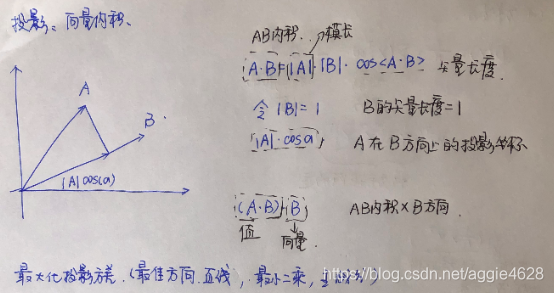 投影：向量内积.
AB内积. 模长
A·B=|A|·|B|·cos<A·B> 矢量长度.
令 |B|=1 B的矢量长度=1
|A|·cosα, A在B方向上的投影坐标
A
B
|A|cos(α)
(A·B)·B AB内积×B方向.
值 向量.
最大化投影方差.(最佳方向.直线, 最小二乘,
https://blog.csdn.net/aggie4628